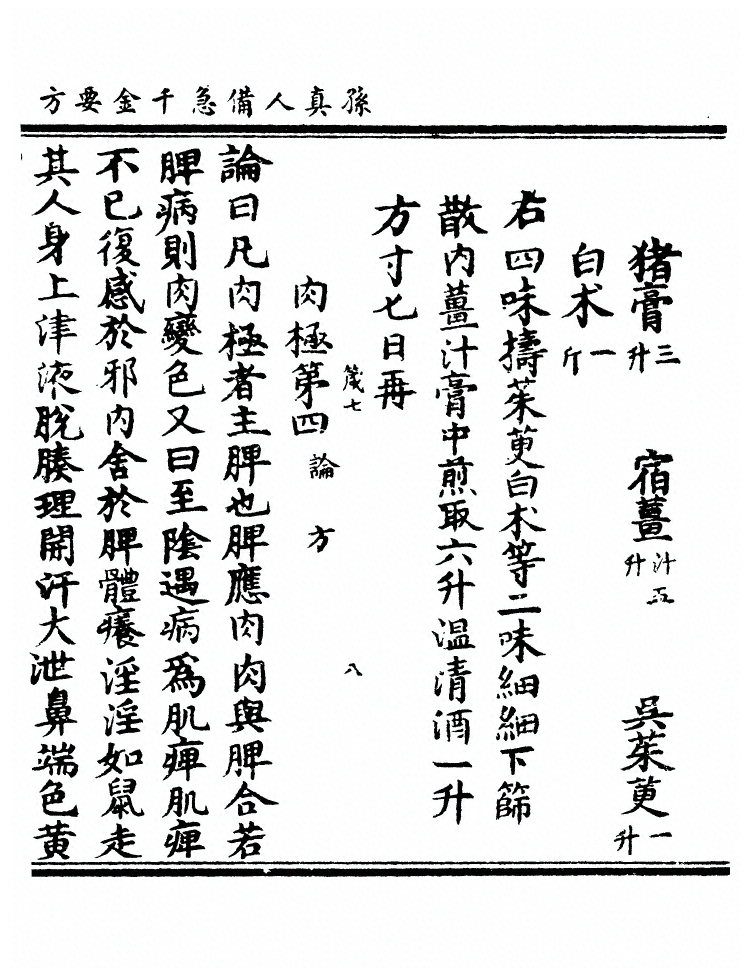 孫真人備急千金要方
猪膏三升 宿薑汁五升 吳茱萸一升
白朮一斤
右四味擣茱萸白朮等二味細細下篩
散內薑汁膏中煎取六升温清酒一升
方寸匕日再
箋七 八
肉極第四論 方
論曰凡肉極者主脾也脾應肉肉與脾合若
脾病則肉變色又曰至陰遇病爲肌痺肌痺
不已復感於邪內舍於脾體癢淫淫如鼠走
其人身上津液脫腠理開汗大泄鼻端色黄